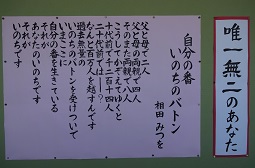 唯一無二のあなた
自分の番
いのちのバトン
相田みつを
父と母で二人
父と母の両親で四人
そのまた両親で八人
こうしてかぞえてゆくと
十代前で千二十四人
二十代前では―?
なんと百万人を越すんです
過去無量の
いのちのバトンを受けついで
いまここに
自分の番を生きている
それが
あなたのいのちです
それがわたしの
いのちです